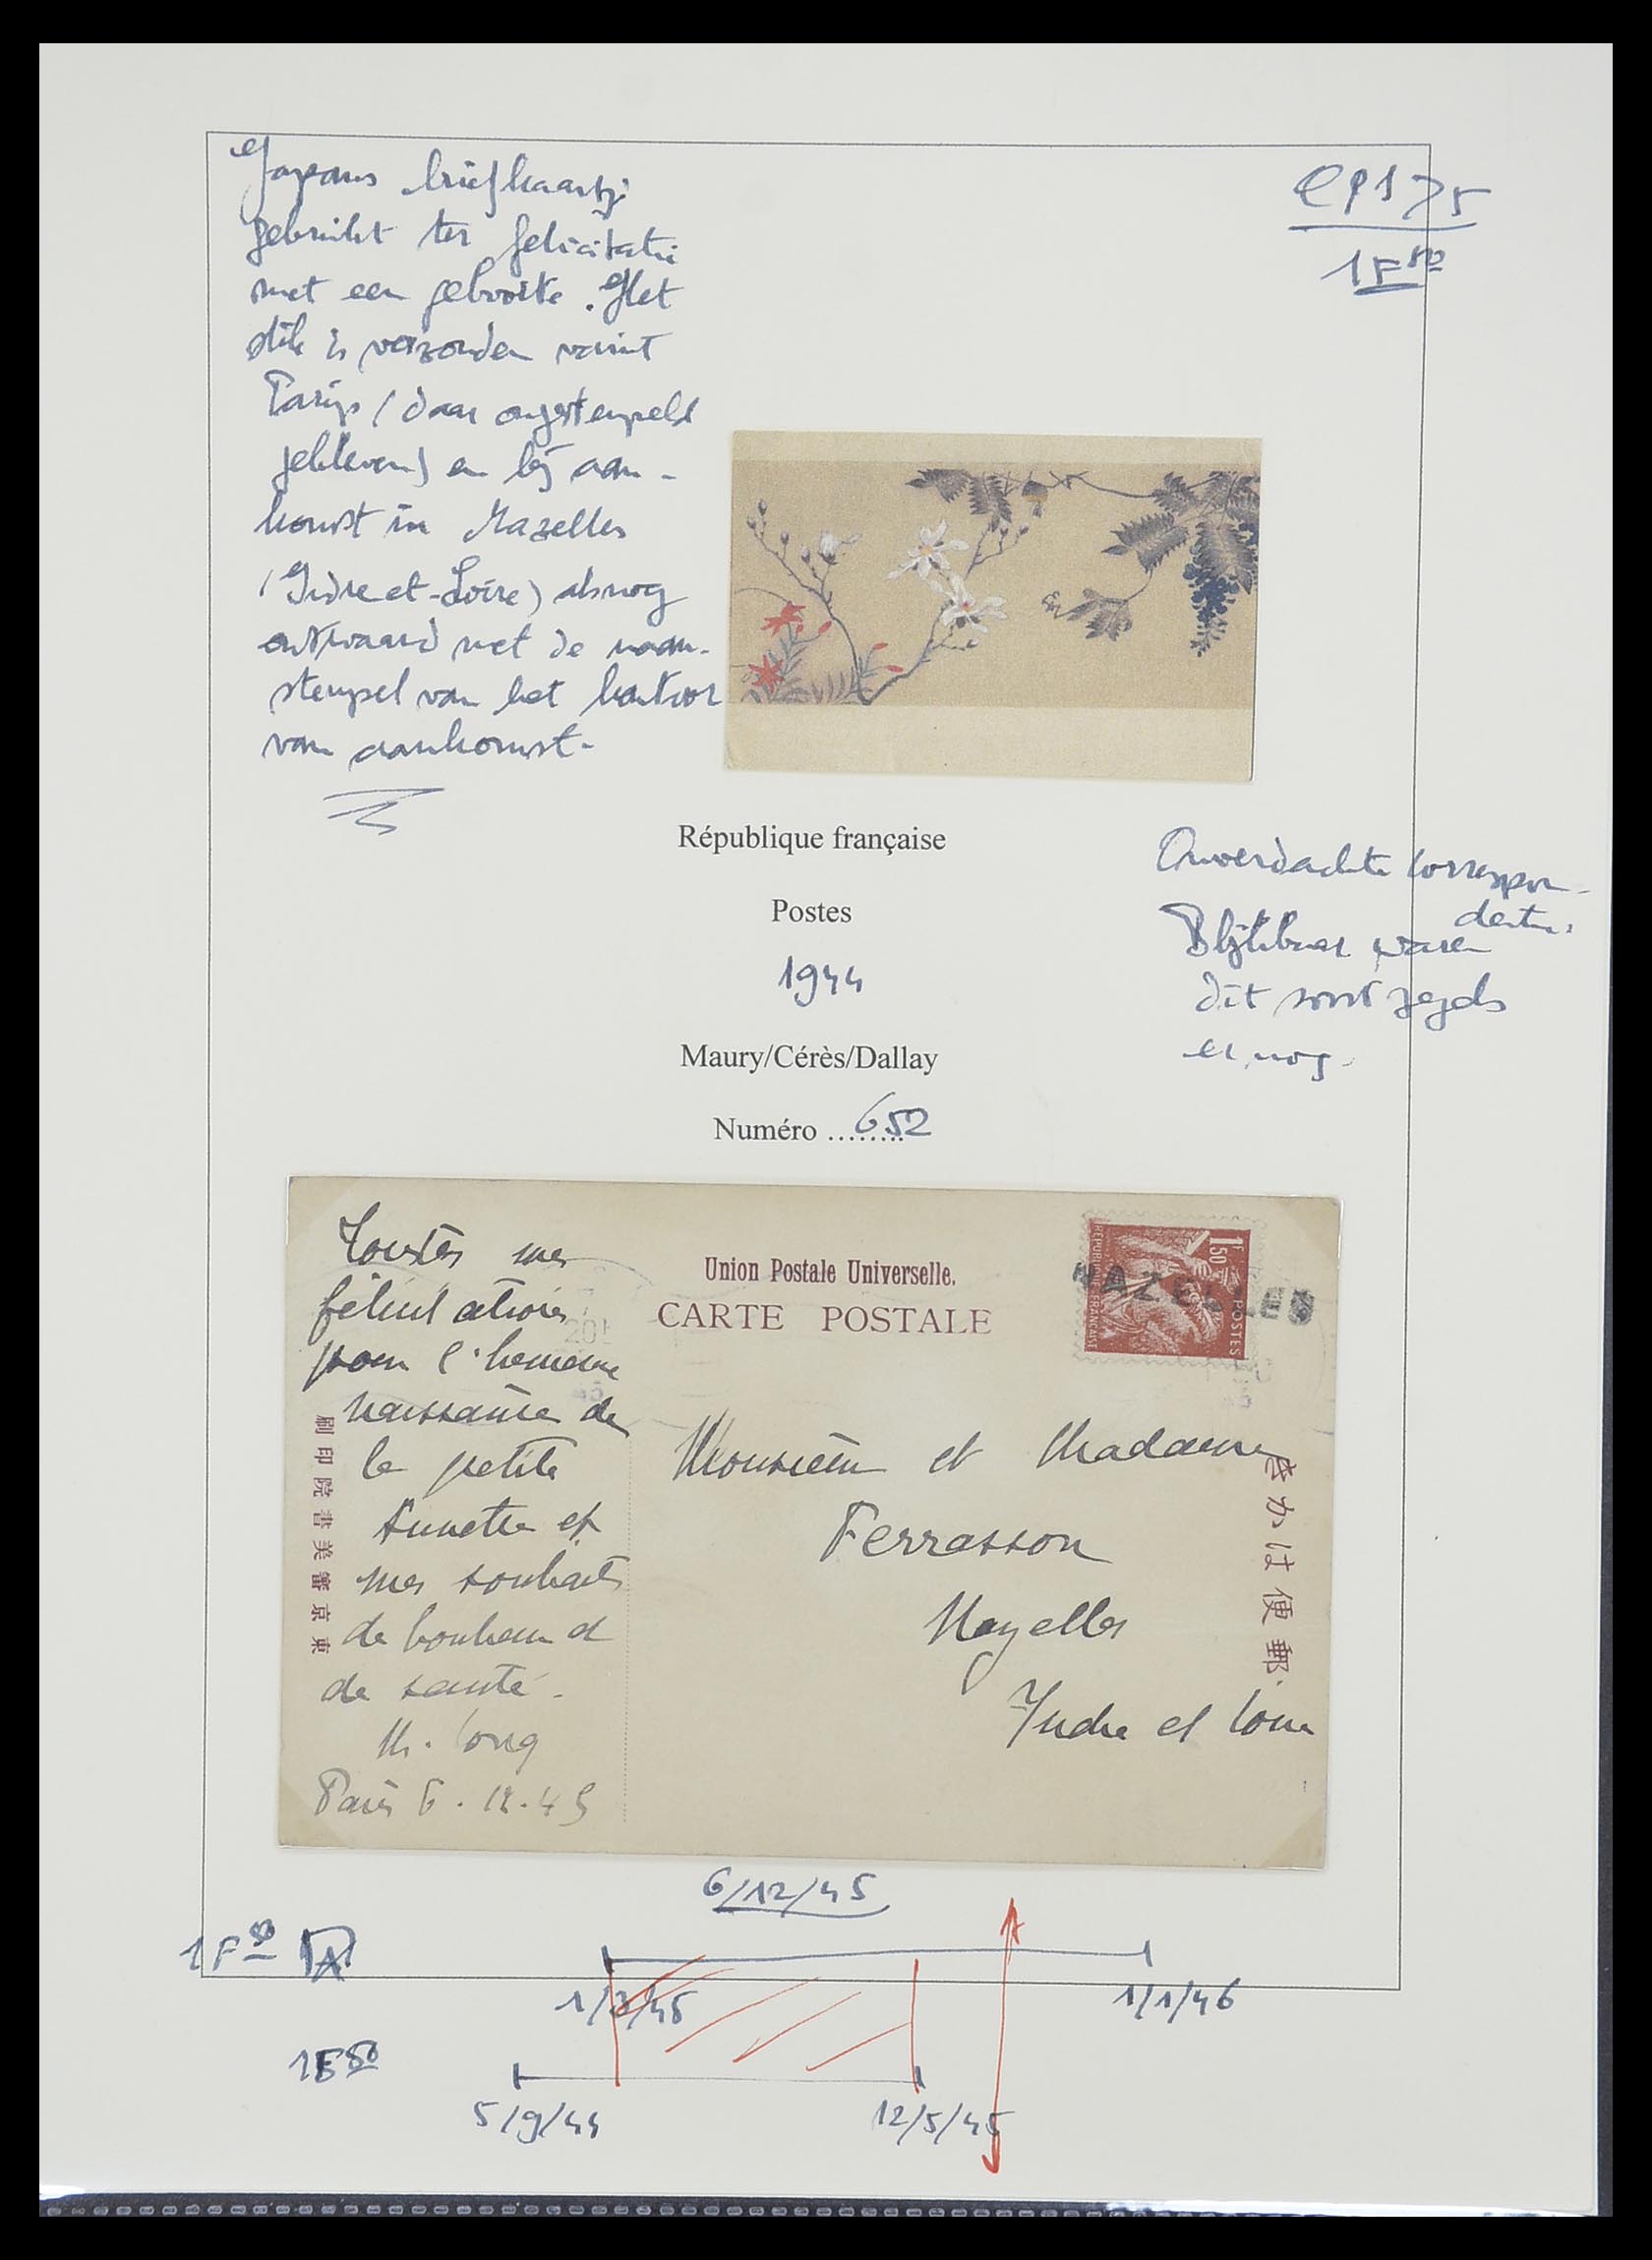 Japans briefkaartje
gebruikt ter felicitatie
met een geboorte. Het
stuk is verzonden vanuit
Parijs (daar ongestempeld
gebleven) en bij aan-
komst in Nazelles
(Indre-et-Loire) alsnog
ontwaard met de naam-
stempel van het kantoor
van aankomst.
CP175
1F50
République française
Postes
1944
Maury/Cérès/Dallay
Numéro ........652
Onverdachte correspon-
dentie.
Blijkbaar waren
dit soort zegels
er nog.
Toutes mes
félicitations
pour l'heureuse
naissance de
la petite
Annette et
mes souhaits
de bonheur et
de santé.
M. Long
Paris 6.12.45
Union Postale Universelle.
CARTE POSTALE
1F50
POSTES
NAZELLES
Monsieur et Madame
Ferrasson
Nazelles
Indre et Loire
東京審美書院印刷
郵便はがき
6/12/45
1F50
1/3/45
1/1/46
1F50
5/9/44
12/5/45